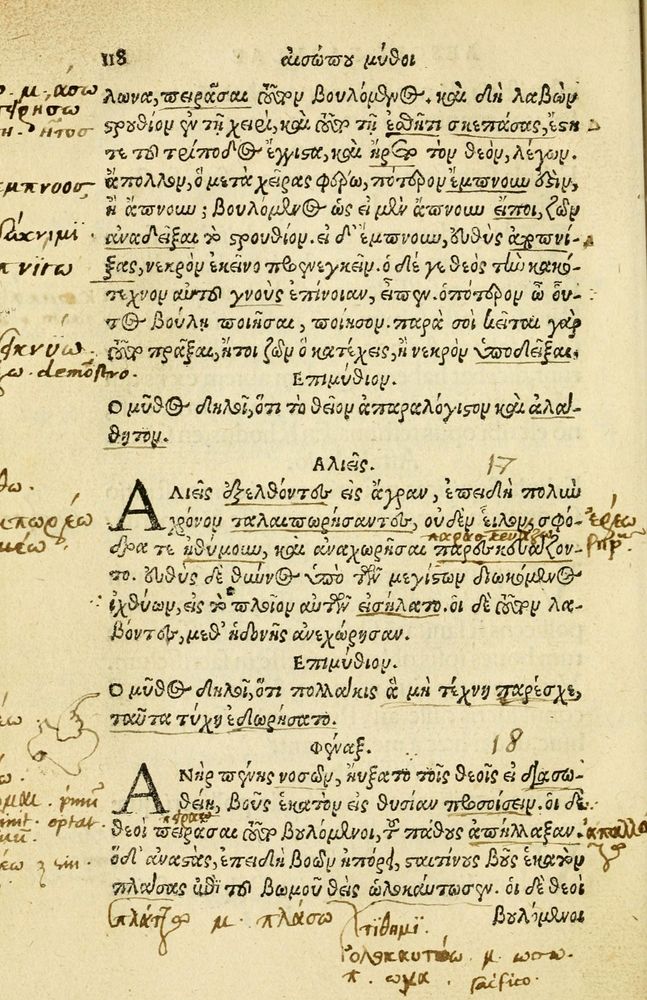 118 αἰσώπου μῦθοι
λωνα, πειρᾶσαι τοῦτον βουλόμενος. καὶ δὴ λαβὼν
στρουθίον ἐν τῇ χειρὶ, καὶ τοῦτο τῇ ἐσθῆτι σκεπάσας, ἔστη
τε τοῦ τρίποδος ἔγγιστα, καὶ ἤρετο τὸν θεὸν, λέγων.
ἄπολλον, ὃ μετὰ χεῖρας φέρω, πότερον ἔμπνουν ἐστὶν,
ἢ ἄπνουν; βουλόμενος ὡς εἰ μὲν ἄπνουν εἴποι, ζῶν
ἀναδεῖξαι τὸ στρουθίον. εἰ δ' ἔμπνουν, εὐθὺς ἀποπνί-
ξας, νεκρὸν ἐκεῖνο προενεγκεῖν. ὁ δέ γε θεὸς τὴν κακό-
τεχνον αὐτοῦ γνοὺς ἐπίνοιαν, εἶπεν. ὁπότερον ὦ οὗ-
τος βούλῃ ποιῆσαι, ποίησον. παρὰ σοὶ κεῖται γὰρ
τοῦτο πρᾶξαι, ἤτοι ζῶν ὃ κατέχεις, ἢ νεκρὸν ὑποδεῖξαι.
Ἐπιμύθιον.
Ο μῦθος δηλοῖ, ὅτι τὸ θεῖον ἀπαραλόγιστον καὶ ἀλάν-
θητον.
ΑΛΙΕΙΣ. 17
ΑΛΙΕῖς ἐξελθόντες εἰς ἄγραν, ἐπειδὴ πολὺν
χρόνον ταλαιπωρήσαντες, οὐδὲν εἷλον, σφό-
δρα τε ἠθύμουν, καὶ ἀναχωρῆσαι παρεσκευάζον-
το. εὐθὺς δὲ θύννος ὑπό του τῶν μεγίστων διωκόμενος
ἰχθύων, εἰς τὸ πλοῖον αὐτῶν εἰσήλατο. οἱ δὲ τοῦτον λα-
βόντες, μεθ' ἡδονῆς ἀνεχώρησαν.
Ἐπιμύθιον.
Ο μῦθος δηλοῖ, ὅτι πολλάκις ἃ μὴ τέχνη παρέσχε,
ταῦτα τύχη ἐδωρήσατο.
Φέναξ. 18
ΑΝὴρ πένης νοσῶν, ηὔξατο τοῖς θεοῖς εἰ διασω-
θείη, βοῦς ἑκατὸν εἰς θυσίαν προσοίσειν. οἱ δὲ
θεοὶ πειρᾶσαι τοῦτον βουλόμενοι, τοῦ πάθους ἀπήλλαξαν.
ὁ δ' ἀναστὰς, ἐπειδὴ βοῶν ἠπόρει, στατίνους βοῦς ἑκατὸν
πλάσας ἐπὶ τοῦ βωμοῦ θεὶς ὡλοκαύτωσεν. οἱ δὲ θεοὶ
βουλόμενοι
πλάττω μ. πλάσω
τίθημι
demostro.